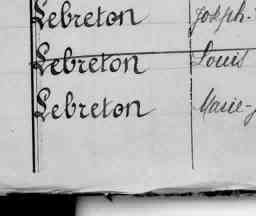 Lebreton Joseph-
Lebreton Louis
Lebreton Marie-